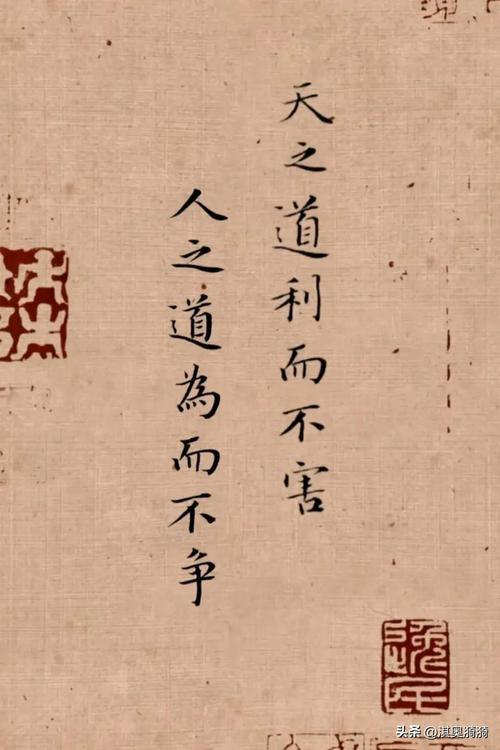 天之道利而不害
人之道為而不争
头条 @淇奥猗猗